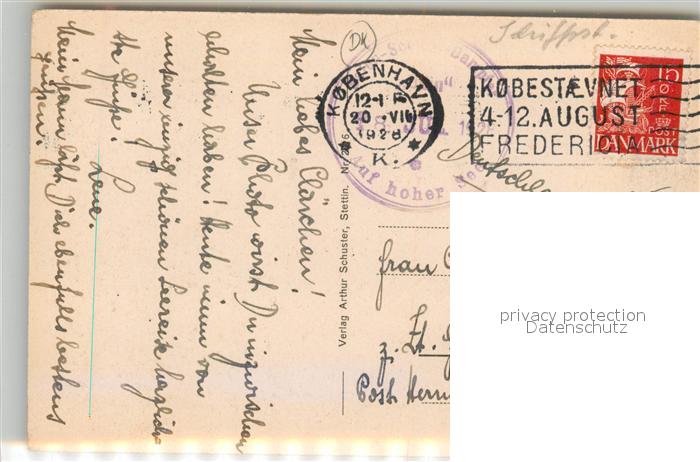 DK
Schiffpost.
KØBENHAVN
12-1 E
20. VII
1928
K.
KØBESTÆVNET
4-12. AUGUST
FREDERICIA
15
ØRE
POST
DANMARK
Auf hoher See
Deutschland
Mein liebes Clärchen!
Unser Photo wirst Du inzwischen
erhalten haben! Heute nun von
unserer einzig schönen Seereise herzlich-
ste Grüße! Lene.
Mein Mann läßt Dich ebenfalls bestens
grüßen!
Verlag Arthur Schuster, Stettin. Nr.
Frau
z. Zt.
Post Herrn
privacy protection
Datenschutz